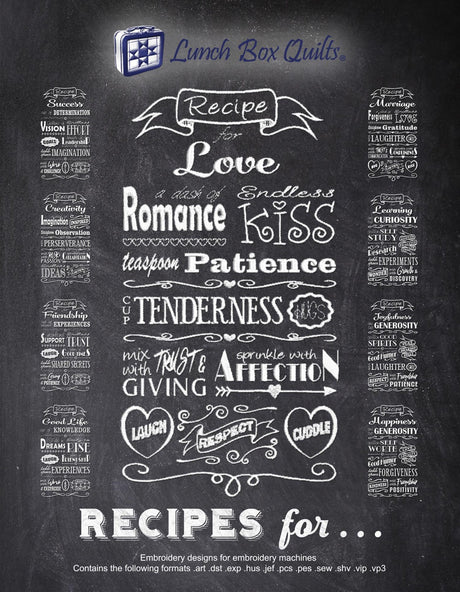 Lunch Box Quilts®
Recipe
for
Love
a dash of
Romance
Endless
KISS
teaspoon Patience
CUP TENDERNESS HUGS
mix with TRUST & GIVING
sprinkle with AFFECTION
LAUGH
RESPECT
CUDDLE
Recipe
Success
DETERMINATION
VISION EFFORT
GOALS Leadership
IMAGINATION
CHALLENGE
Recipe
Creativity
Imagination
Observation
PERSEVERANCE
PASSION
IDEAS
Recipe
Friendship
EXPERIENCES
SUPPORT TRUST
SHARED SECRETS
Recipe
Good Life
KNOWLEDGE
DREAMS RISE
EXPERIENCES
Recipe
Marriage
Forgiveness
Gratitude
LAUGHTER
Recipe
Learning
CURIOSITY
SELF STUDY
Research
EXPERIMENTS
DISCOVERY
Recipe
Joyfulness
GENEROSITY
GOOD SPIRITS
LAUGHTER
PATIENCE
Recipe
Happiness
GENEROSITY
SELF WORTH
FORGIVENESS
POSITIVITY
RECIPES for . . .
Embroidery designs for embroidery machines
Contains the following formats .art .dst .exp .hus .jef .pcs .pes .sew .shv .vip .vp3